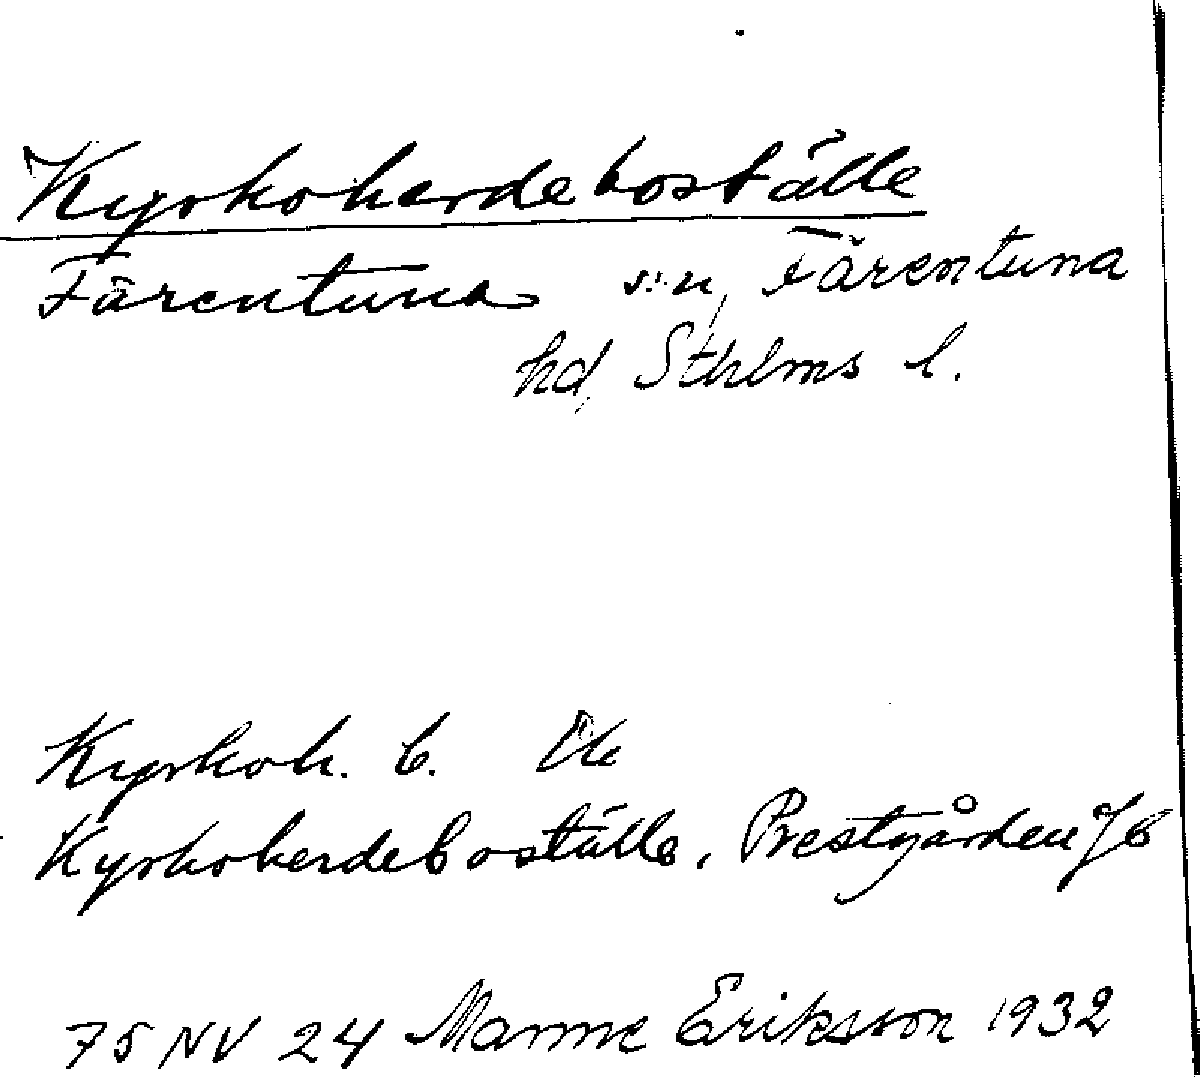 Kyrkoherdeboställe
Färentuna s:n, Färentuna
hd, Sthlms l.
Kyrkoh. b. Ek
Kyrkoherdeboställe, Prestgården Jb
75 NV 24 Manne Eriksson 1932